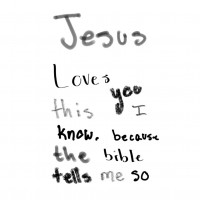 Jesus
Loves you
this I
know, because
the bible
tells me so